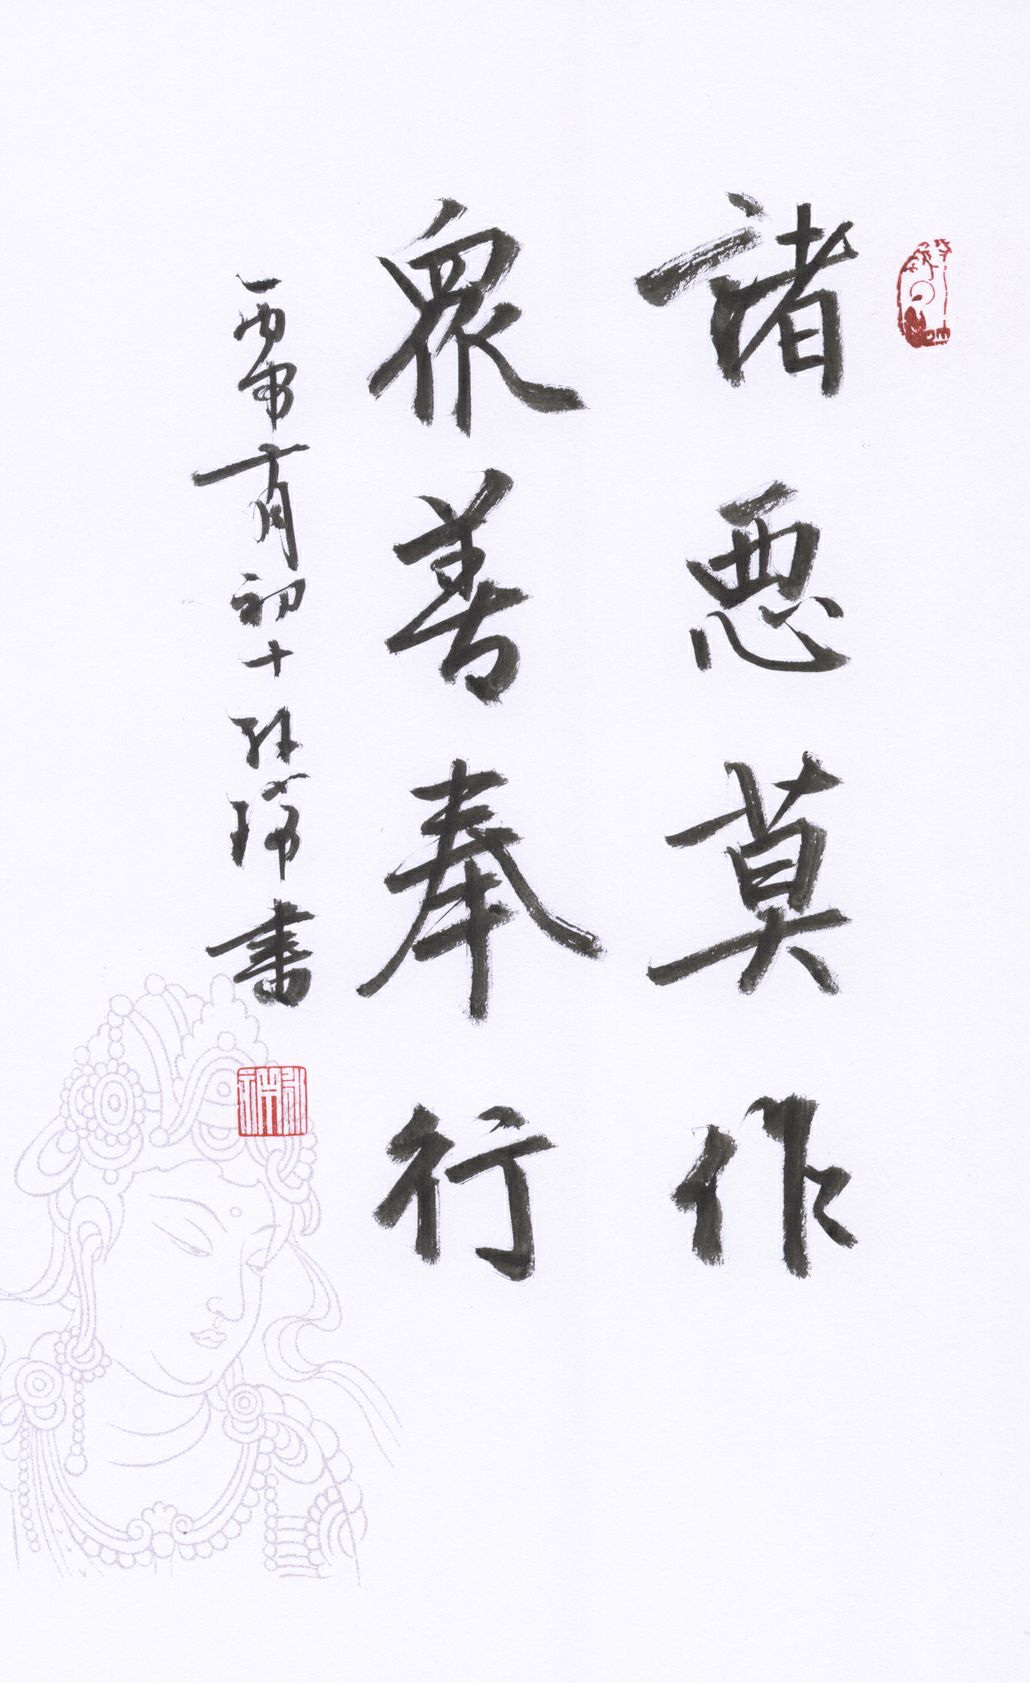 諸悪莫作
衆善奉行
丙申月初十書